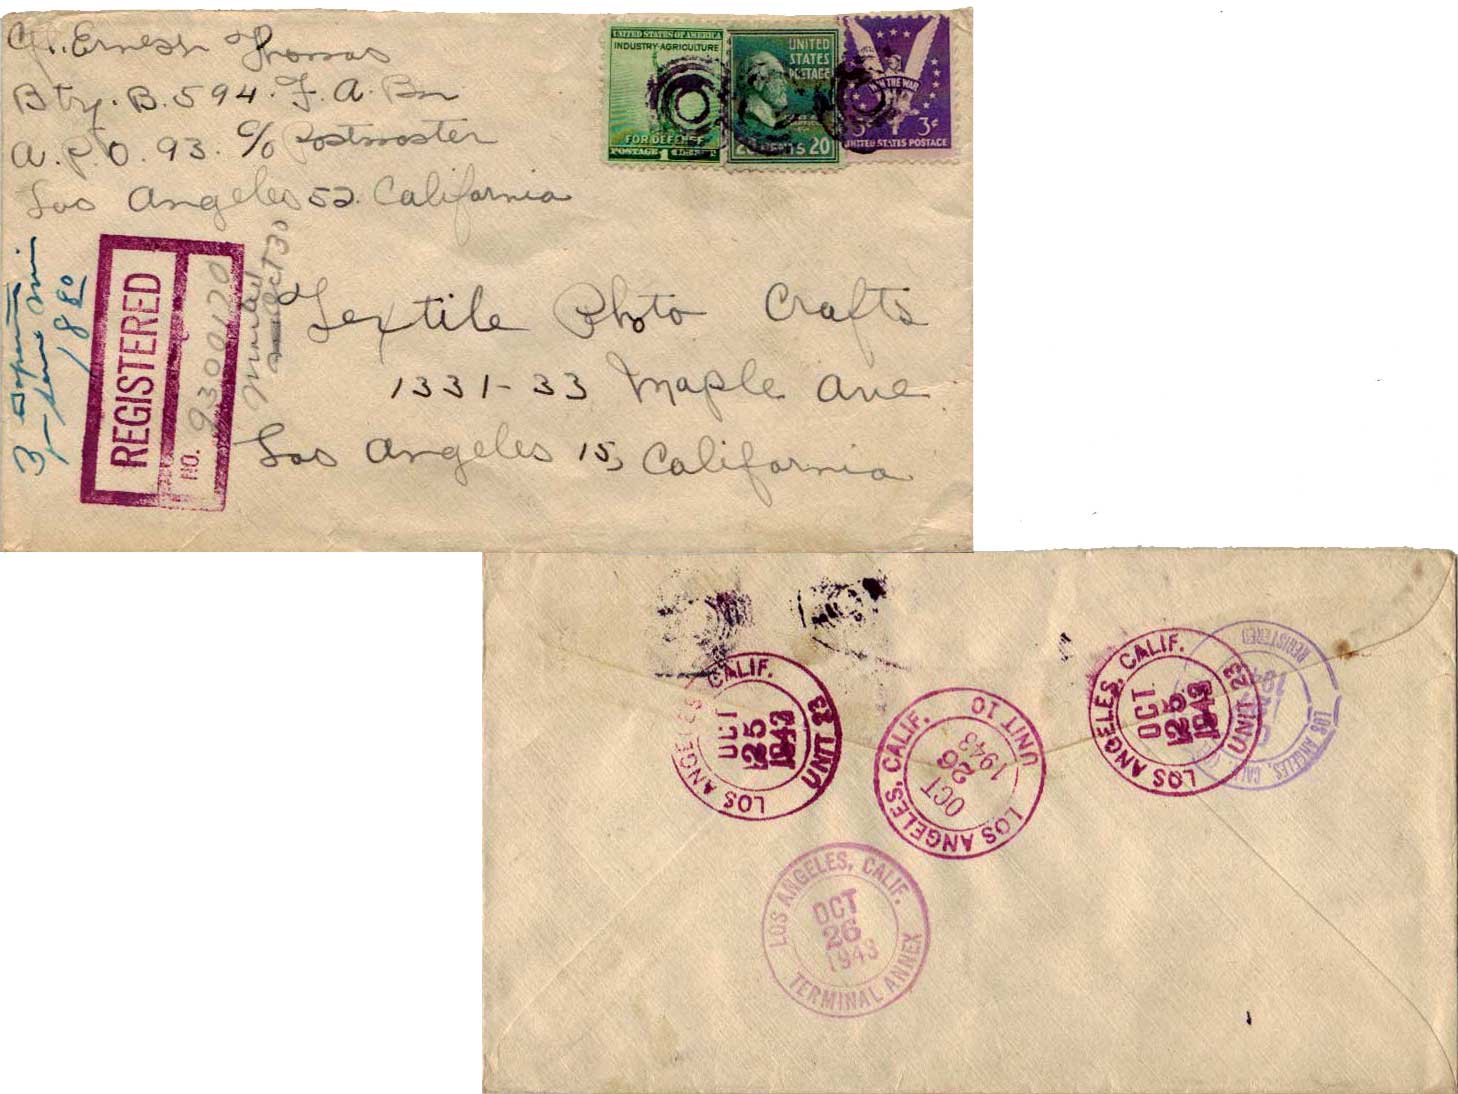 Ernest Thomas
Btry. B. 594. F. A. Bn
A.P.O. 93. c/o Postmaster
Los Angeles 52. California
UNITED STATES OF AMERICA
INDUSTRY·AGRICULTURE
FOR DEFENSE
POSTAGE 1 CENT
UNITED
STATES
POSTAGE
20 CENTS 20
WIN THE WAR
3 3¢
UNITED STATES POSTAGE
3
1880
REGISTERED
NO. 9300120
mailed
Oct 30
Textile Photo Crafts
1331-33 Maple Ave
Los Angeles 15, California
LOS ANGELES, CALIF. UNIT 23
OCT
25
1943
LOS ANGELES, CALIF. UNIT 10
OCT
26
1943
LOS ANGELES, CALIF. UNIT 23
OCT
25
1943
LOS ANGELES, CALIF.
REGISTERED
LOS ANGELES, CALIF.
OCT
26
1943
TERMINAL ANNEX